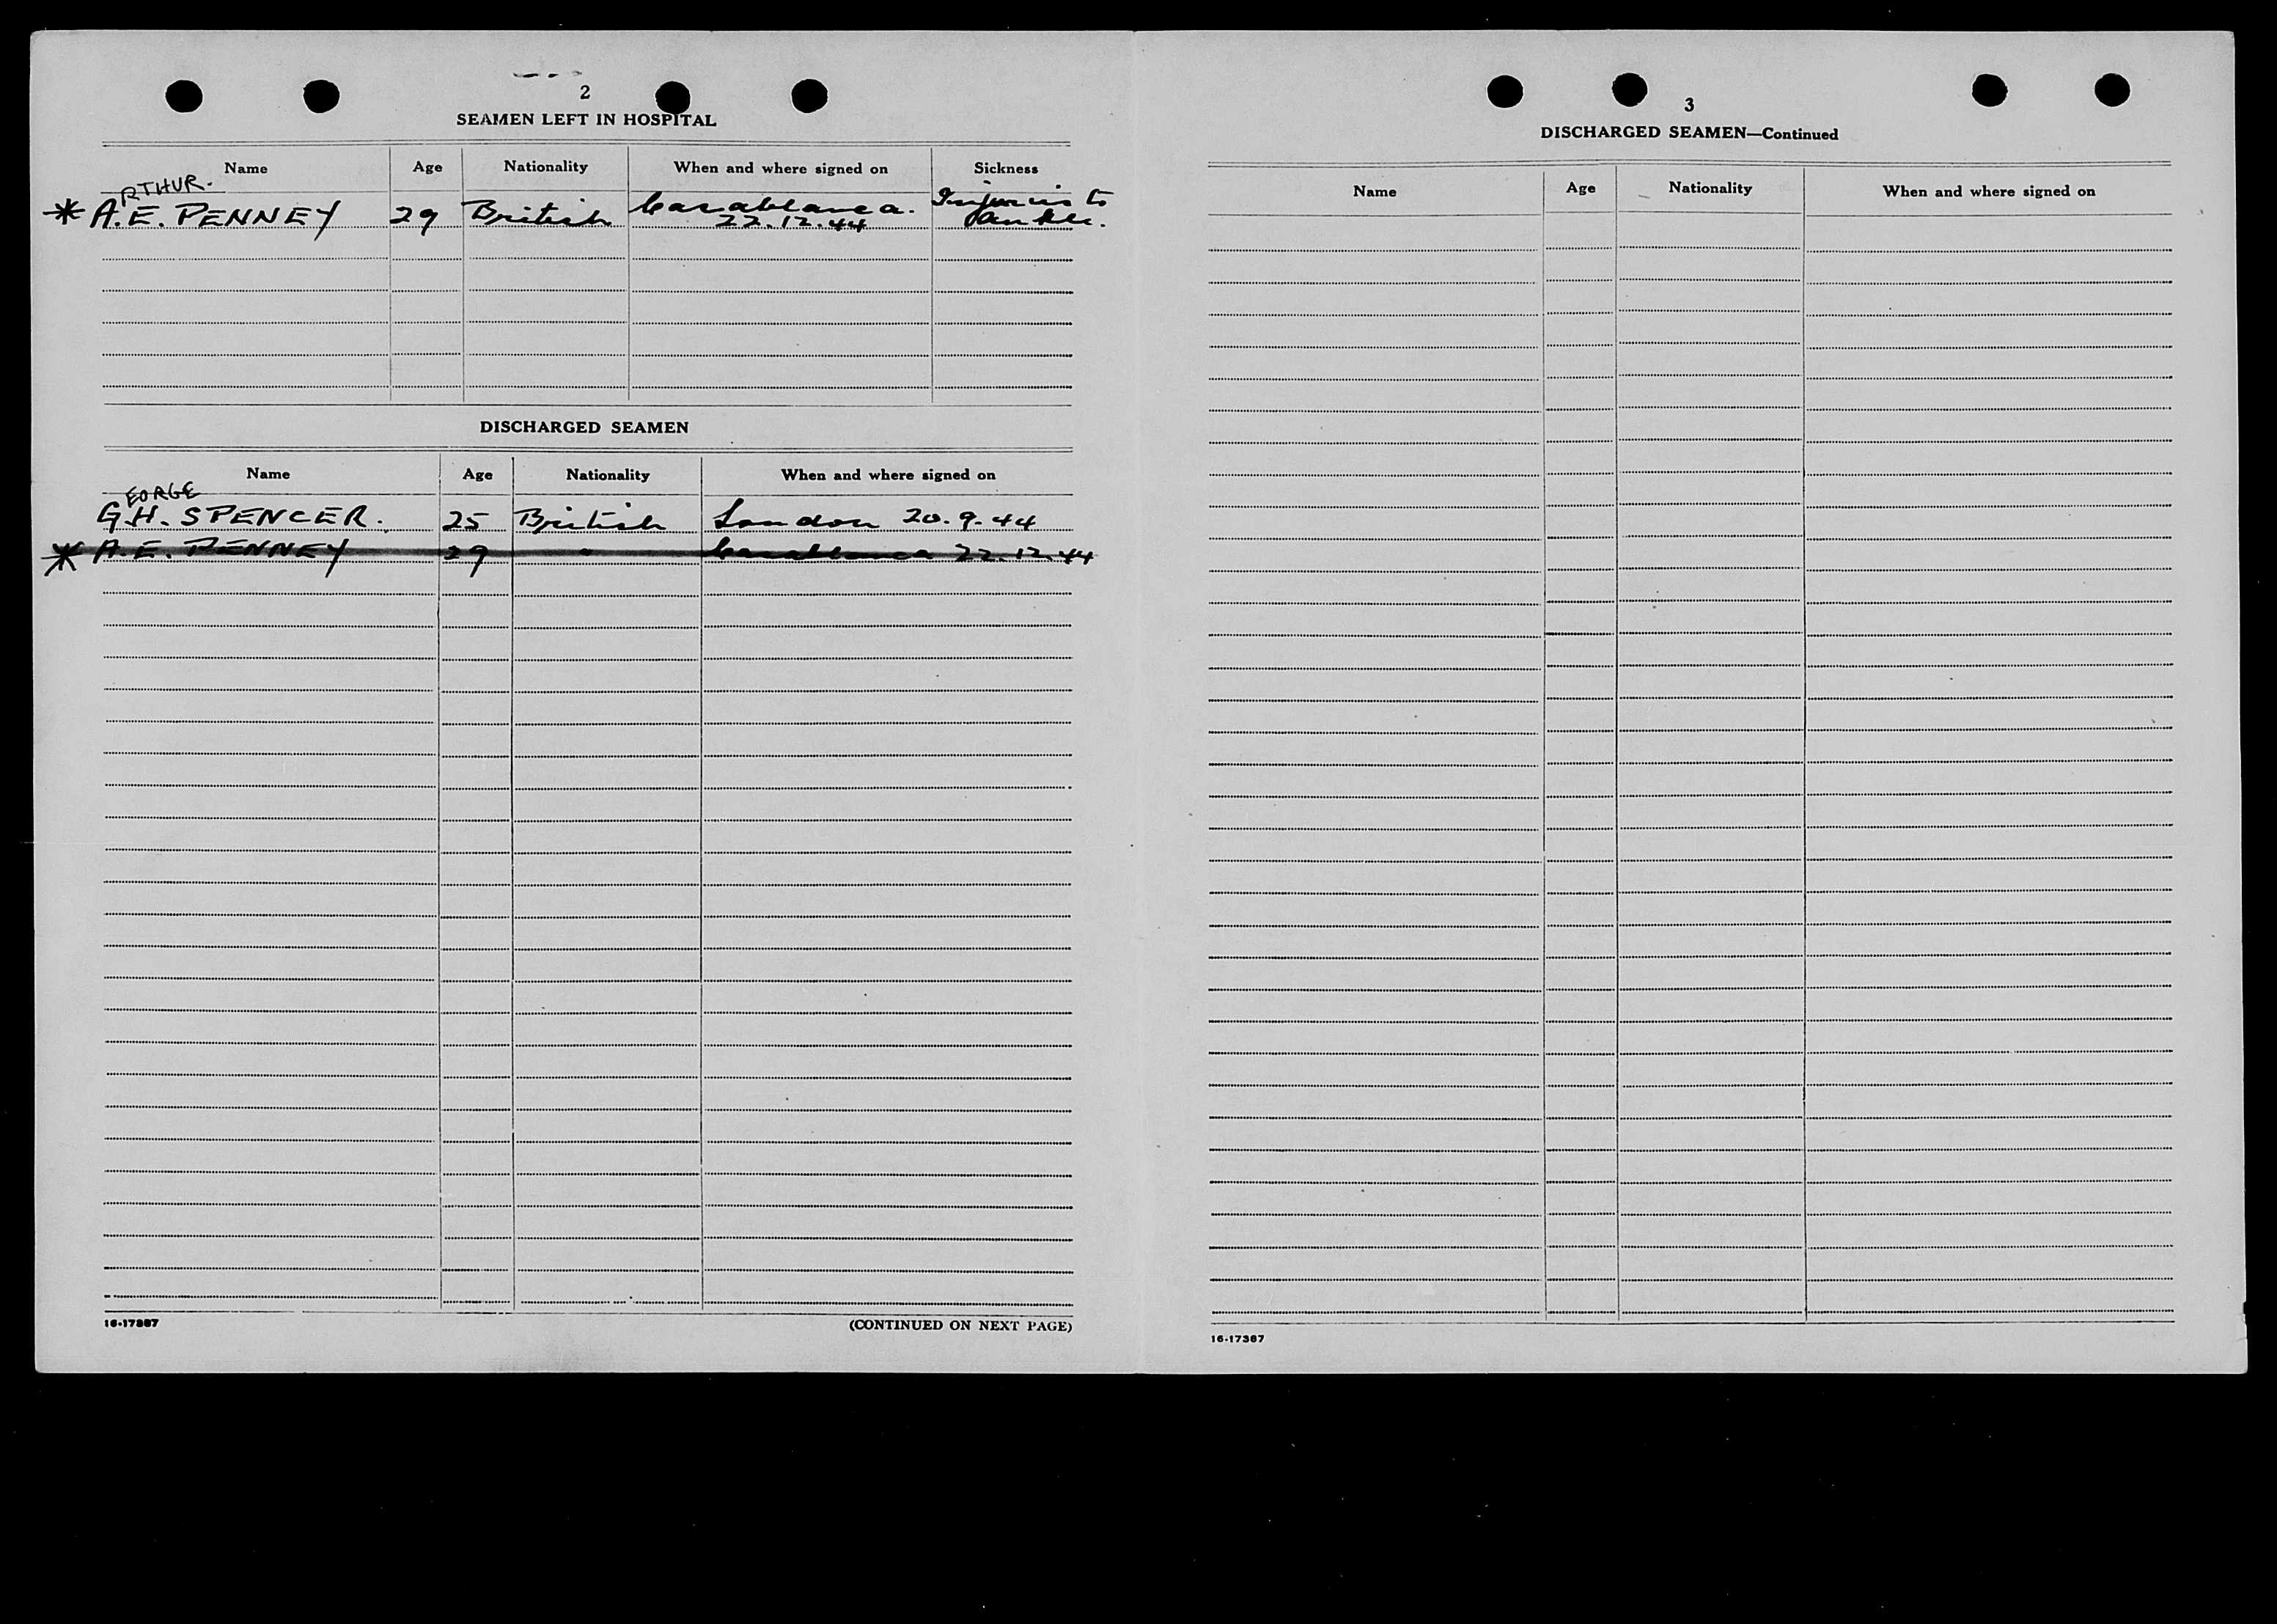 2
SEAMEN LEFT IN HOSPITAL
Name Age Nationality When and where signed on Sickness
RTHUR.
* A.E. PENNEY 29 British Casablanca. Injuries to
22.12.44 ankle.
DISCHARGED SEAMEN
Name Age Nationality When and where signed on
EORGE
G.H. SPENCER. 25 British London 20.9.44
* A.E. PENNEY 29 " Casablanca 22.12.44
16-17367
(CONTINUED ON NEXT PAGE)
3
DISCHARGED SEAMEN—Continued
Name Age Nationality When and where signed on
16-17367